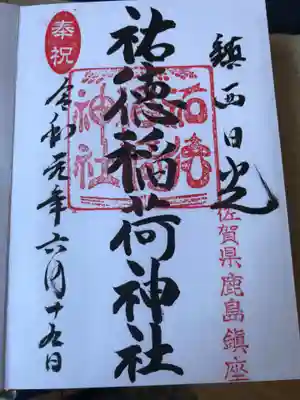 鎮西日光
佐賀県鹿島鎮座
祐徳稲荷神社
祐徳
神社
奉祝
令和元年六月十五日